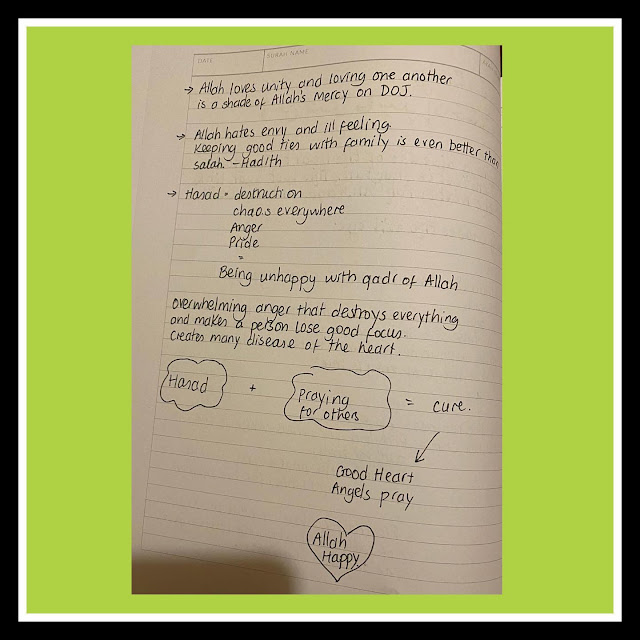 DATE
SURAH NAME
→ Allah loves unity and loving one another
is a shade of Allah's Mercy on DOJ.
→ Allah hates envy and ill feeling.
Keeping good ties with family is even better than
salah. - Hadith
→ Hasad = destruction
chaos everywhere
Anger
Pride
=
Being unhappy with qadr of Allah
overwhelming anger that destroys everything
and makes a person lose good focus.
Creates many disease of the heart.
Hasad + Praying for others = cure.
Good Heart
Angels pray
Allah
Happy